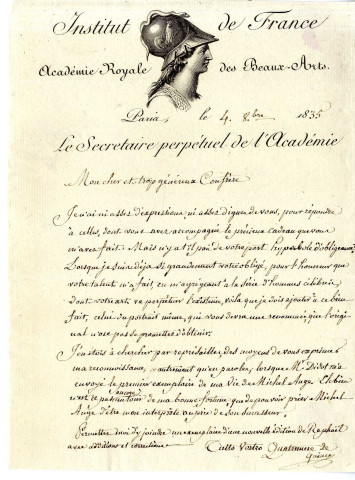 Institut de France
Académie Royale des Beaux-Arts.
Paris, le 4. 8bre 1835
Le Secrétaire perpétuel de l'Académie
Mon cher et trop généreux Confrère
Je n'ai ni assez d'expressions, ni assez dignes de vous, pour répondre
à celles, dont vous avez accompagné le précieux cadeau que vous
m'avez fait. Mais n'y a t'il pas de votre part hyperbole d'obligeance?
Lorsque je suis déja si grandement votre obligé, pour l'honneur que
votre talent m'a fait, en m'agrégeant à la série d'hommes célèbres
dont votre art va perpétuer l'existence, voilà que je dois ajouter à ce bien
fait, celui du portrait même, qui vous devra une renommée que l'origi
nal n'ose pas se promettre d'obtenir.
J'en étois à chercher par représailles, des moyens de vous exprimer
ma reconnoissance, autrement qu'en paroles, lorsque Mr Didot m'a
envoyé le premier exemplaire de ma Vie de Michel Ange. Et bien
c'est encore un tour de ma bonne fortune, que de pouvoir prier Michel
Ange d'être mon interprète auprès de son successeur.
Permettez moi d'y joindre un exemplaire d'une nouvelle édition de Raphaël
avec additions et corrections
Tutto Vostro Quatremere de
Quincy